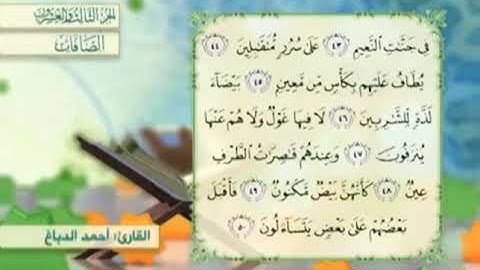 الجزء الثالث والعشرون
الصافات
فِي جَنَّٰتِ ٱلنَّعِيمِ ٤٣ عَلَىٰ سُرُرٍ مُّتَقَٰبِلِينَ ٤٤
يُطَافُ عَلَيْهِم بِكَأْسٍ مِّن مَّعِينٍۭ ٤٥ بَيْضَآءَ
لَذَّةٍ لِّلشَّٰرِبِينَ ٤٦ لَا فِيهَا غَوْلٌ وَلَا هُمْ عَنْهَا
يُنزَفُونَ ٤٧ وَعِندَهُمْ قَٰصِرَٰتُ ٱلطَّرْفِ
عِينٌ ٤٨ كَأَنَّهُنَّ بَيْضٌ مَّكْنُونٌ ٤٩ فَأَقْبَلَ
بَعْضُهُمْ عَلَىٰ بَعْضٍ يَتَسَآءَلُونَ ٥٠
القارئ: أحمد الدباغ